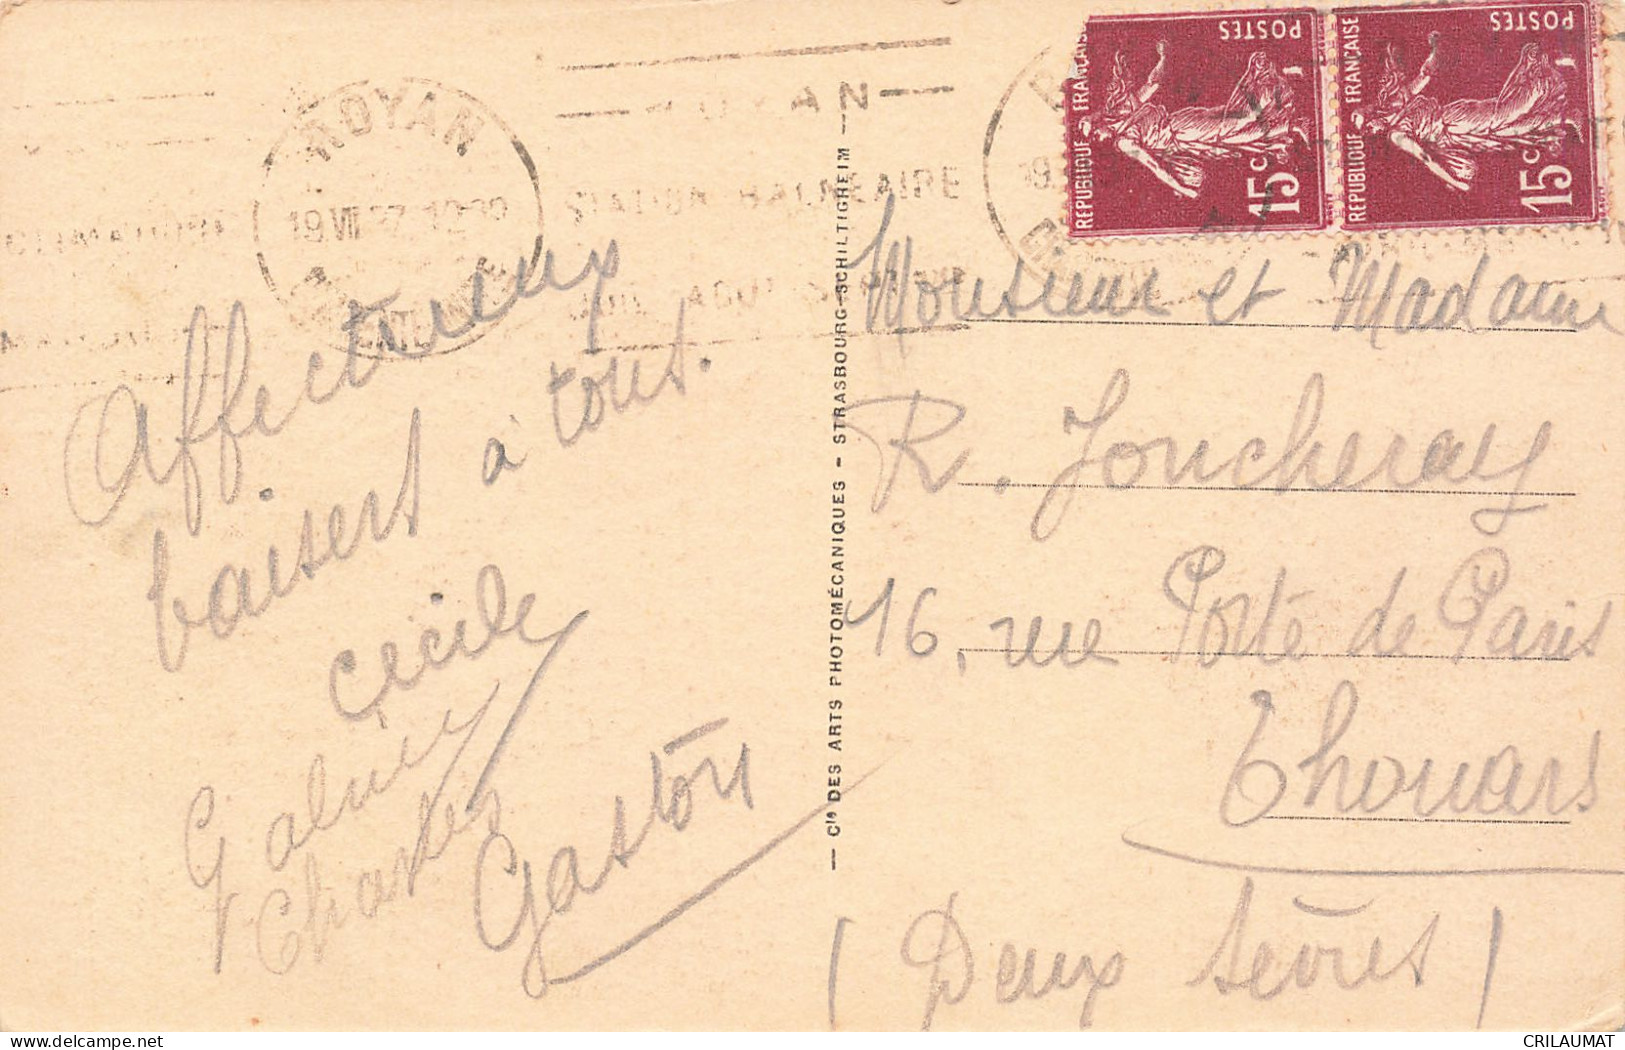 ROYAN
19 VII 37 12
ROYAN
STATION BALNEAIRE
POSTES
RÉPUBLIQUE FRANÇAISE
15c
POSTES
RÉPUBLIQUE FRANÇAISE
15c
Affectueux
baisers à tous.
Cécile
Charles
Gaston
— Cie DES ARTS PHOTOMÉCANIQUES - STRASBOURG-SCHILTIGHEIM —
Monsieur et Madame
R. Joucheray
16, rue Porte de Paris
Thouars
(Deux Sèvres)
CRILAUMAT